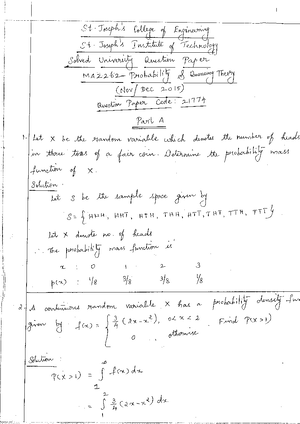 St. Joseph's College of Engineering
St. Joseph's Institute of Technology
Solved University Question Paper
MA2262 - Probability & Queueing Theory
(Nov/Dec 2015)
Question Paper Code: 21774
Part A
1. Let X be the random variable which denotes the number of heads
in three toss of a fair coin. Determine the probability mass
function of X.
Solution:
Let S be the sample space given by
S = { HHH, HHT, HTH, THH, HTT, THT, TTH, TTT }
Let X denote no. of heads
∴ The probability mass function is
x : 0 1 2 3
p(x) : 1/8 3/8 3/8 1/8
2. A continuous random variable X has a probability density fun
given by f(x) = { 3/4 (2x-x²), 0<x<2 Find P(X>1)
0 , otherwise
Solution:
P(X>1) = ∫ f(x) dx
1
2
= ∫ 3/4 (2x-x²) dx
1